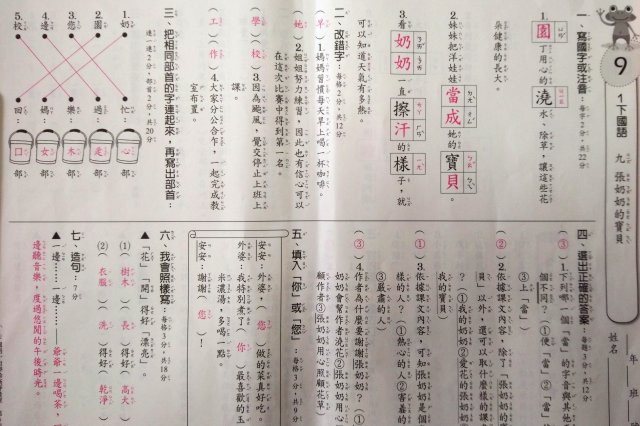 9
1下國語
九 張奶奶的寶貝
年 班
姓名
一、寫國字或注音：每字2分，共22分
1.園丁用心的澆水、除草，讓這些花
朵健康的長大。
2.妹妹把洋娃娃當成她的寶貝。
3.看奶奶一直擦汗的樣子，就
可以知道天氣有多熱。
二、改錯字：每格2分，共12分
(早)1.媽媽習慣每天草上喝一杯咖啡。
(她)2.姐姐努力練習，因此也有信心可以
在這次比賽中得到第一名。
(學)(校)3.因為颱風，覺交停止上班上
課。
(工)(作)4.大家分公合作，一起完成教
室布置。
三、把相同部首的字連起來，再寫出部首：
連一連2分，部首2分，共20分
1.奶 2.園 3.您 4.邊 5.校
忙 過 樂 媽 四
心 辵 木 女 口
部 部 部 部 部
四、選出正確的答案：每題3分，共12分
(③)1.下列哪一個「當」的字音與其他
個不同？①便「當」②「當
③上「當」
(②)2.依據課文內容，除了「張奶奶的寶
貝」以外，還可以取什麼樣的課
？①我的奶奶②愛花的張奶奶
我的寶貝
(①)3.依據課文內容，可知張奶奶是個
樣的人？①熱心的人②害羞的
③嚴肅的人
(③)4.作者為什麼要謝謝張奶奶？①
奶奶會幫作者澆花②張奶奶用心
顧作者③張奶奶用心照顧花草
五、填入「你」或「您」：每格3分，共9分
安安：外婆，(您)做的菜真好吃。
外婆：我特別煮了(你)最喜歡的玉
米濃湯，多喝一點。
安安：謝謝(您)！
六、我會照樣寫：每格3分，共18分
▲「花」「開」得好「漂亮」。
(1)(樹木)(長)得好(高大)
(2)(衣服)(洗)得好(乾淨)
七、造句：7分
▲一邊……一邊……：爺爺一邊喝茶，一
邊聽音樂，度過悠閒的午後時光。